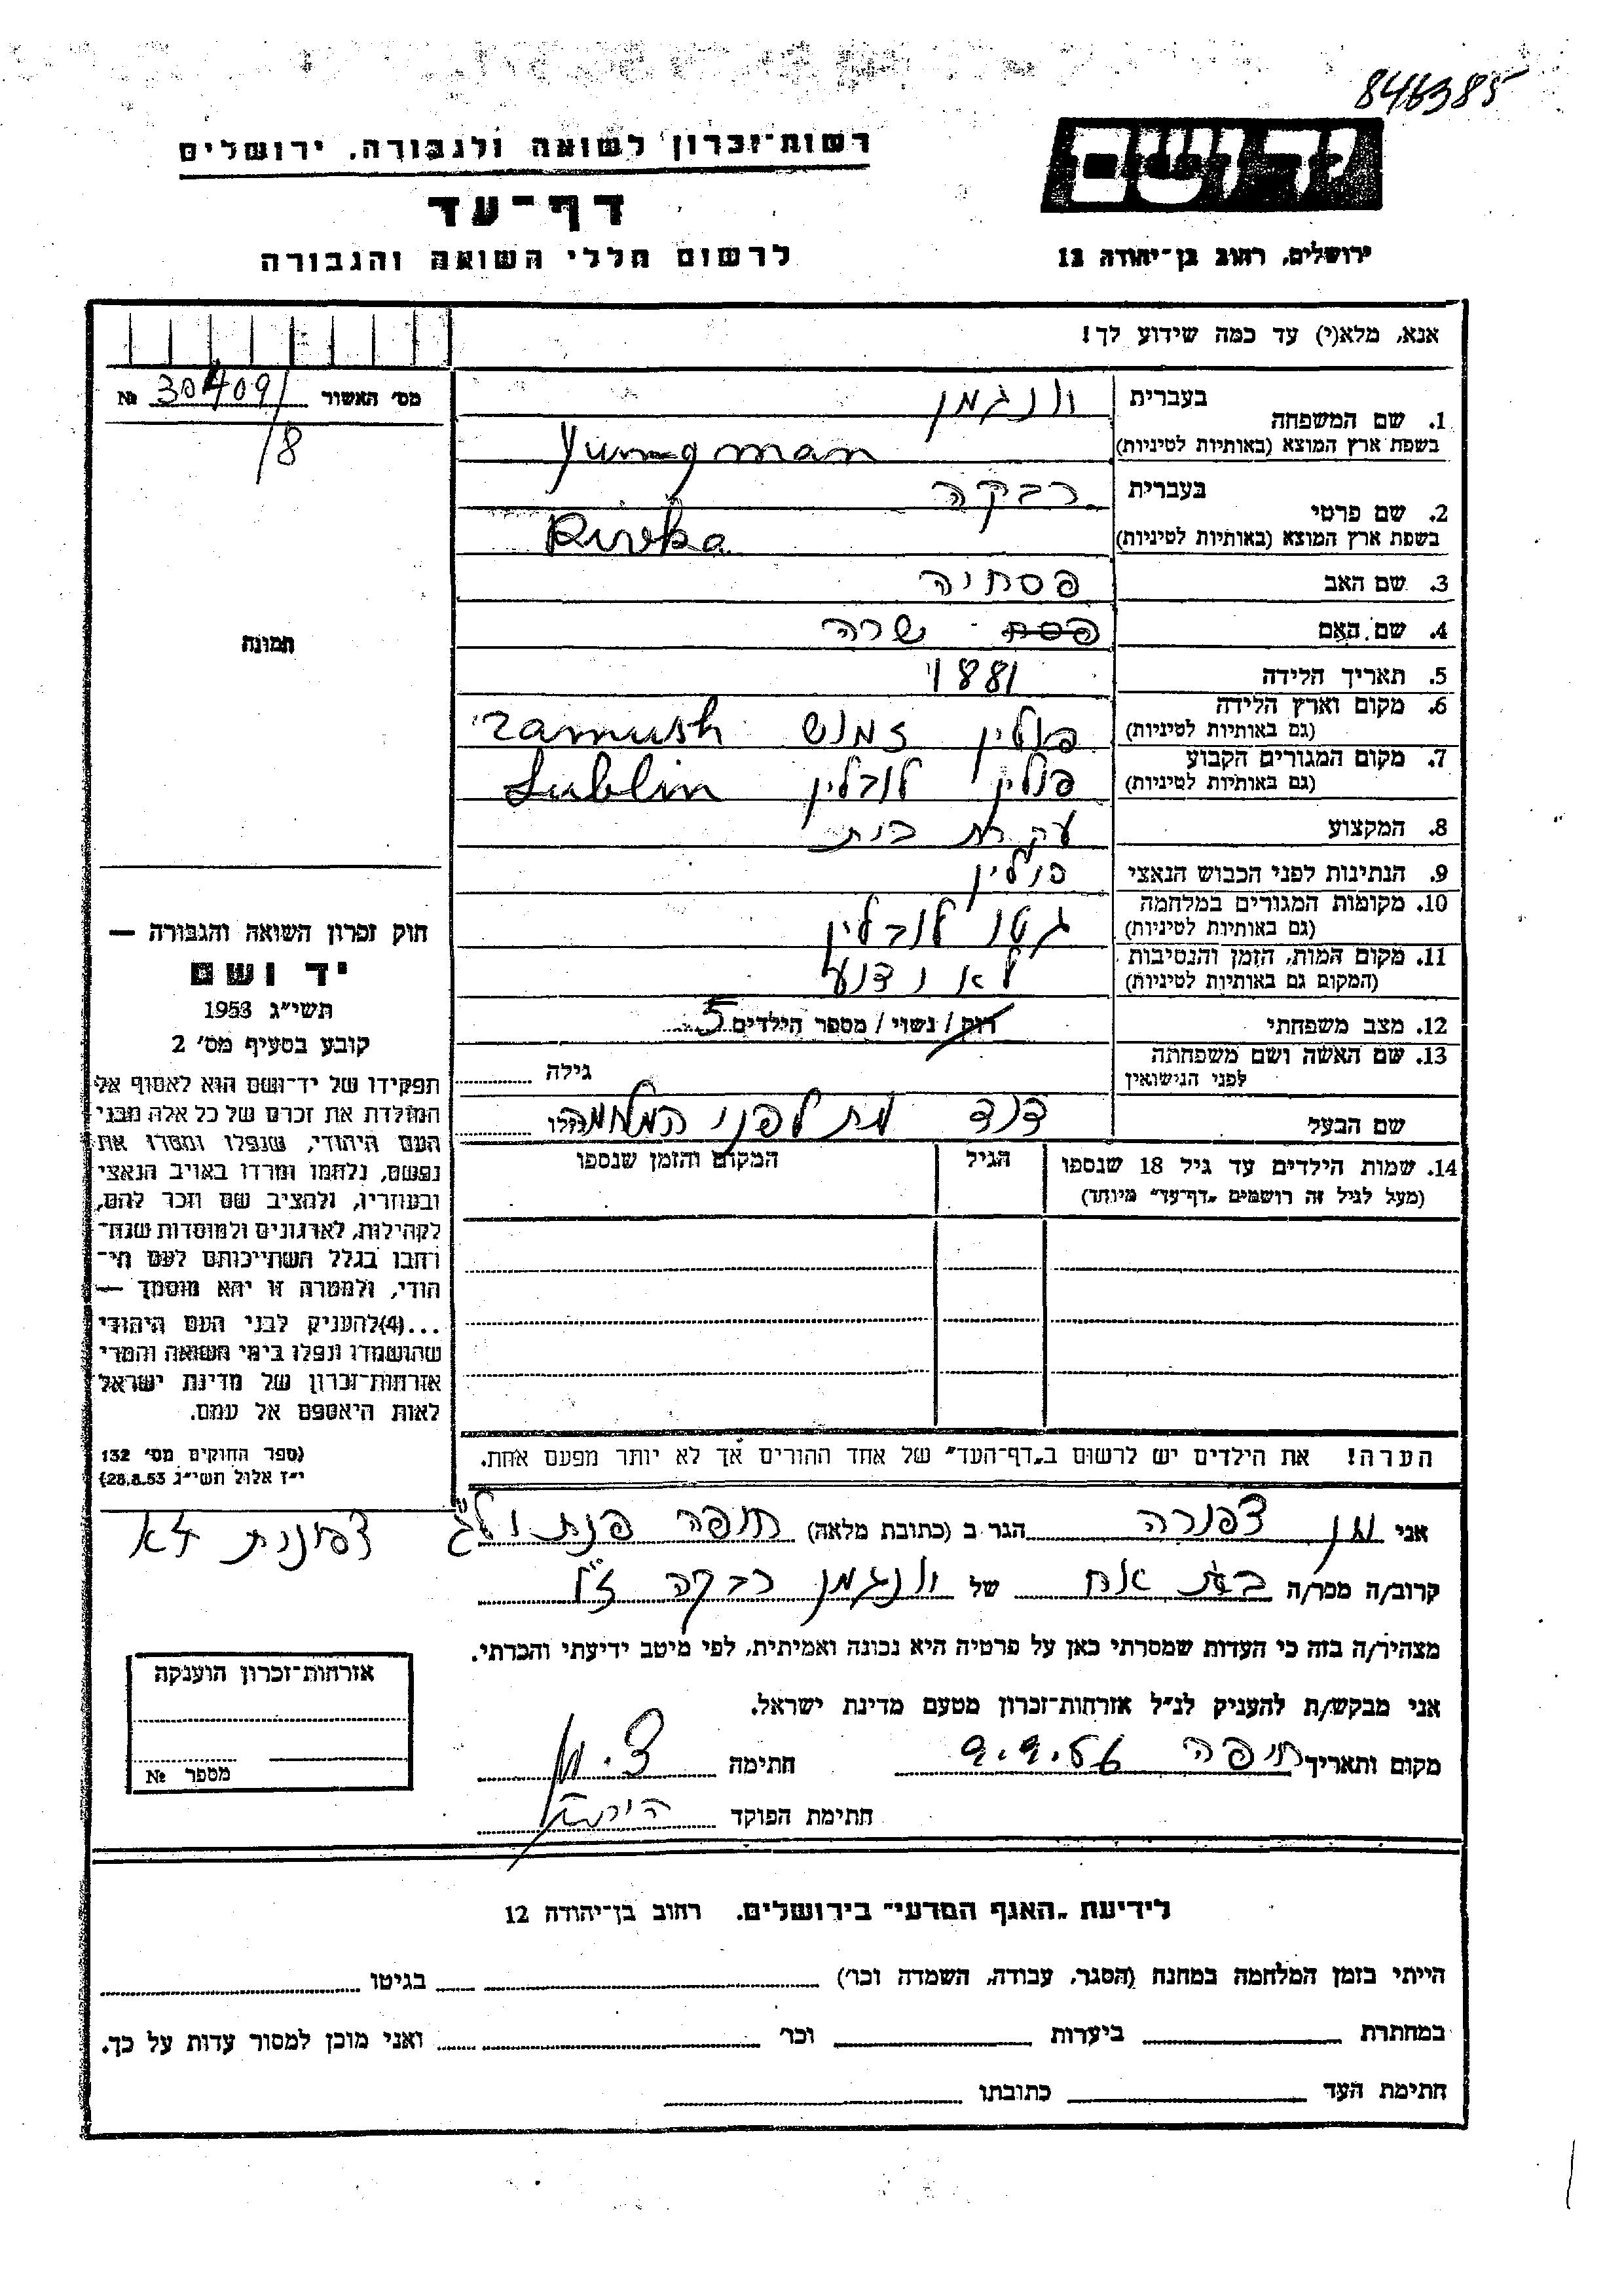 846385
יד ושם
רשות־זכרון לשואה ולגבורה, ירושלים
דף־עד
לרשום חללי השואה והגבורה
ירושלים, רחוב בן־יהודה 12
אנא, מלא(י) עד כמה שידוע לך!
מס׳ האשור 30409/ №
/8
1. שם המשפחה בעברית יונגמן
בשפת ארץ המוצא (באותיות לטיניות) Yungman
2. שם פרטי בעברית רבקה
בשפת ארץ המוצא (באותיות לטיניות) Rivka
3. שם האב פסחיה
4. שם האם פסח שרה
5. תאריך הלידה 1881
6. מקום וארץ הלידה (גם באותיות לטיניות) פולין זמוש zamush
7. מקום המגורים הקבוע (גם באותיות לטיניות) פולין לובלין Lublin
8. המקצוע עקרת בית
9. הנתינות לפני הכבוש הנאצי פולין
10. מקומות המגורים במלחמה (גם באותיות לטיניות) גטו לובלין
11. מקום המות, הזמן והנסיבות (המקום גם באותיות לטיניות) לא נודע
12. מצב משפחתי רוק / נשוי / מספר הילדים 5
13. שם האשה ושם משפחתה לפני הנישואין גילה
שם הבעל דוד מת לפני המלחמה גילו
14. שמות הילדים עד גיל 18 שנספו (מעל לגיל זה רושמים „דף־עד״ מיוחד) הגיל המקום והזמן שנספו
הערה! את הילדים יש לרשום ב„דף־העד״ של אחד ההורים אך לא יותר מפעם אחת.
תמונה
חוק זכרון השואה והגבורה —
יד ושם
תשי״ג 1953
קובע בסעיף מס׳ 2
תפקידו של יד־ושם הוא לאסוף אל
המולדת את זכרם של כל אלה מבני
העם היהודי, שנפלו ומסרו את
נפשם, נלחמו ומרדו באויב הנאצי
ובעוזריו, ולהציב שם וזכר להם,
לקהילות, לארגונים ולמוסדות שנח־
רבו בגלל השתייכותם לעם הי־
הודי, ולמטרה זו יהא מוסמך —
...(4)להעניק לבני העם היהודי
שהושמדו ונפלו בימי השואה והמרי
אזרחות־זכרון של מדינת ישראל
לאות היאספם אל עמם.
(ספר החוקים מס׳ 132
י״ז אלול תשי״ג 28.8.53)
אני צפורה הגר ב (כתובת מלאה) חיפה
קרוב/ה מכר/ה בת אח של יונגמן רבקה ז״ל
מצהיר/ה בזה כי העדות שמסרתי כאן על פרטיה היא נכונה ואמיתית, לפי מיטב ידיעתי והכרתי.
אני מבקש/ת להעניק לנ״ל אזרחות־זכרון מטעם מדינת ישראל.
מקום ותאריך חיפה חתימה
חתימת הפוקד
אזרחות־זכרון הוענקה
מספר №
לידיעת „האגף המדעי״ בירושלים. רחוב בן־יהודה 12
הייתי בזמן המלחמה במחנה (הסגר, עבודה, השמדה וכו׳) בגיטו
במחתרת ביערות וכו׳ ואני מוכן למסור עדות על כך.
חתימת העד כתובתו